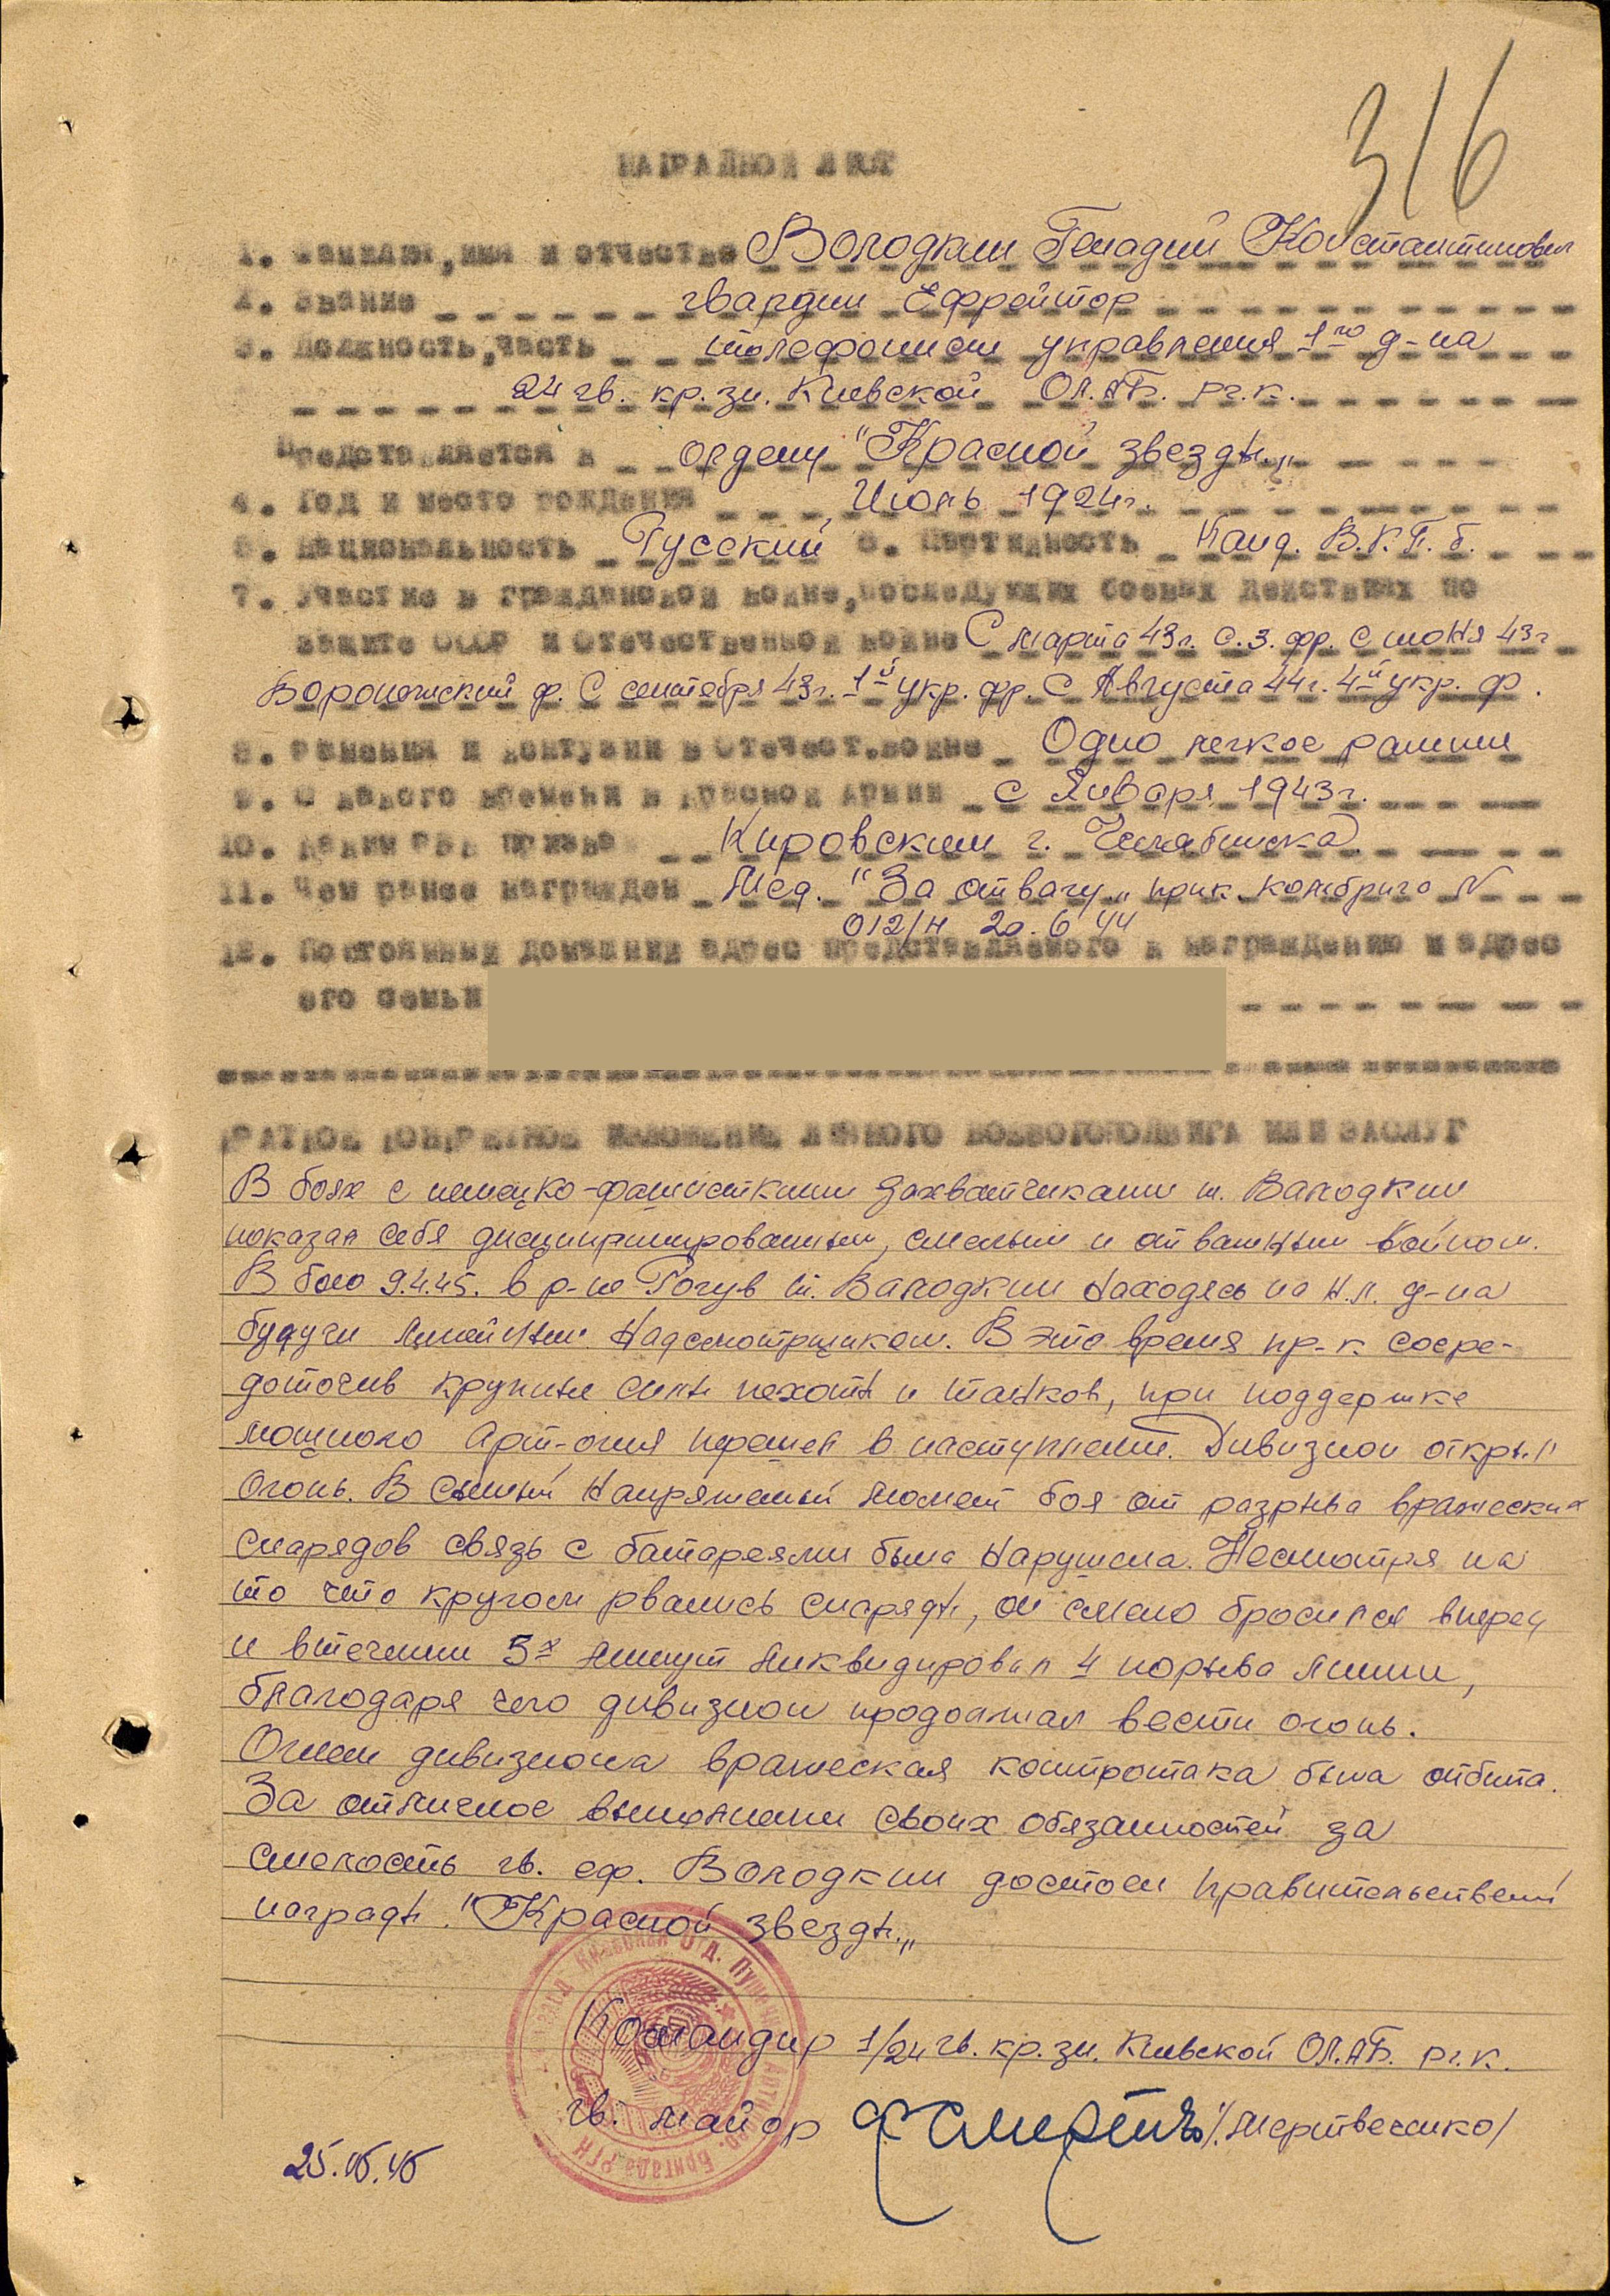 316
НАГРАДНОЙ ЛИСТ
1. Фамилия, имя и отчество Володкин Генадий Константинович
2. Звание гвардии Ефрейтор
3. Должность, часть телефонист управления 1го д-на
24 гв. кр. зн. Киевской ОП.АБ. РГ.К.
Представляется к ордену "Красной звезды"
4. Год и место рождения Июль 1924г.
5. Национальность Русский 6. Партийность Канд. В.К.П.б.
7. Участие в гражданской войне, последующих боевых действиях по
защите СССР и Отечественной войне С марта 43г. С.З. фр. с июня 43г
Воронежский ф. С сентября 43г. 1й укр. фр. С Августа 44г. 4й укр. ф.
8. Ранения и контузии в Отечест.войне Одно легкое ранение
9. С какого времени в Красной Армии с Января 1943г.
10. Каким РВК призван Кировским г. Челябинска
11. Чем ранее награжден Мед. "За отвагу" прик. комбрига №
012/н 20.6 44
12. Постоянный домашний адрес представляемого к награждению и адрес
его семьи
КРАТКОЕ КОНКРЕТНОЕ ИЗЛОЖЕНИЕ ЛИЧНОГО БОЕВОГО ПОДВИГА ИЛИ ЗАСЛУГ
В боях с немецко-фашисткими захватчиками т. Валодкин
показал себя дисциплинированным, смелым и отважным войном.
В бою 9.4.45. в р-не Рогув т. Валодкин находясь на Н.П. д-на
будучи линейным надсмотрщиком. В это время пр-к сосре-
доточив крупные силы пехоты и танков, при поддержке
мощного Арт-огня перешел в наступление. Дивизион открыл
огонь. В самый напряженый момент боя от разрыва вражеских
снарядов связь с батареями была нарушена. Несмотря на
то что кругом рвались снаряды, он смело бросился вперед
и втечении 5х минут ликвидировал 4 порыва линии,
благодаря чего дивизион продолжал вести огонь.
Огнем дивизиона вражеская контратака была отбита.
За отличное выполнение своих обязанностей за
смелость гв. еф. Володкин достоен правительственой
награды "Красной звезды"
Командир 1/24 гв. кр. зн. Киевской ОП.АБ. РГ.К.
гв. майор /Мертвеенко/
25.